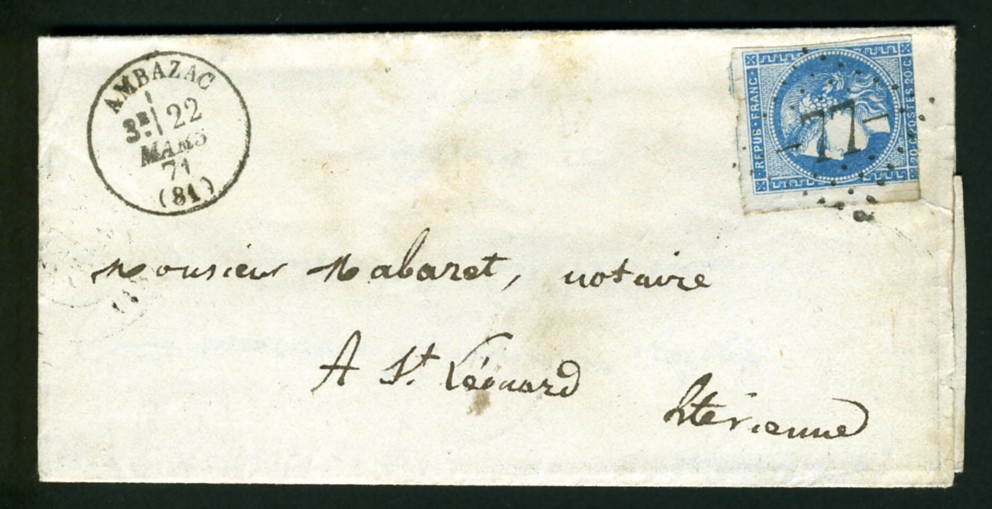 AMBAZAC
3E 22
MARS
71
(81)
REPUB · FRANC ·
POSTES 20 C
20 C
77
Monsieur Mabaret, notaire
A St Léonard
Hte Vienne